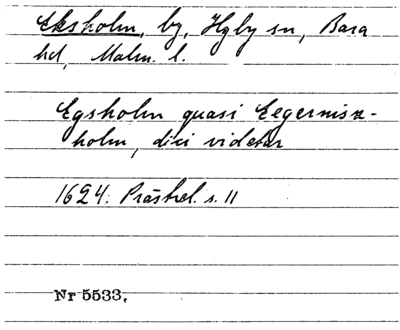 Eksholm, by, Hyby sn, Bara
hd, Malm. l.
Egsholm quasi Eegernisz-
holm, dici videtur
1624: Prästrel. s. 11
Nr 5533.